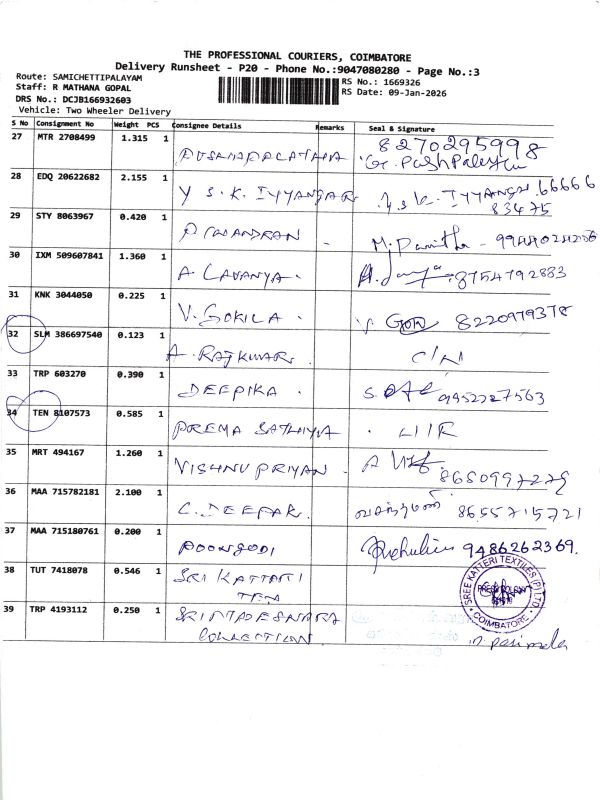 THE PROFESSIONAL COURIERS, COIMBATORE
Delivery Runsheet - P20 - Phone No.:9047080280 - Page No.:3
Route: SAMICHETTIPALAYAM
Staff: R MATHANA GOPAL
DRS No.: DCJB166932603
Vehicle: Two Wheeler Delivery
RS No.: 1669326
RS Date: 09-Jan-2026
S No Consignment No Weight PCS Consignee Details Remarks Seal & Signature
27 MTR 2708499 1.315 1 8270295998
28 EDQ 20622682 2.155 1 Y S.K. IYYANGAR Y S K IYYANGAR 66666
83475
29 STY 8063967 0.420 1 P CHANDRAN
30 IXM 509607841 1.360 1 A. LAVANYA. 8754792883
31 KNK 3044050 0.225 1 V. GOKILA. 8220979378
32 SLM 386697540 0.123 1 A. RAJKUMAR.
33 TRP 603270 0.390 1 DEEPIKA. 9952227563
34 TEN 8107573 0.585 1 PREMA SATHIYA
35 MRT 494167 1.260 1 VISHNU PRIYAN 8650997279
36 MAA 715782181 2.100 1 C. DEEPAK. 8655715721
37 MAA 715180761 0.200 1 POONGODI 9486262369.
38 TUT 7418078 0.546 1 SRI KATTARI
TEX
SREE KATTERI TEXTILES (P) LTD
COIMBATORE
39 TRP 4193112 0.250 1
COLLECTION.